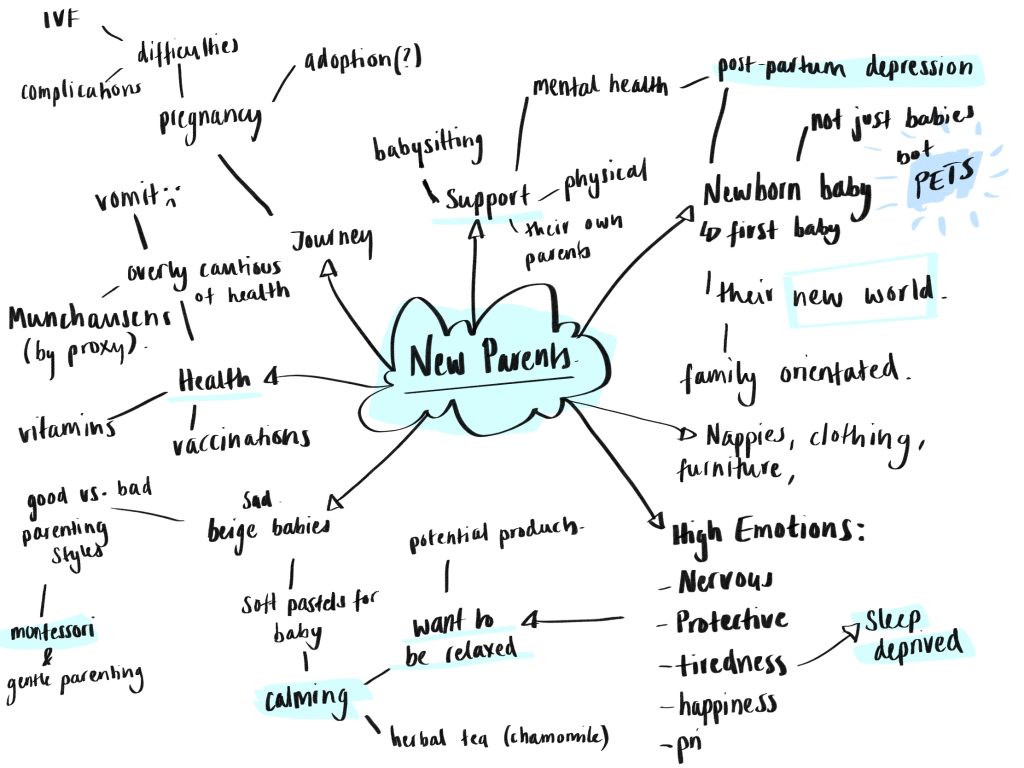 IVF
difficulties
complications
pregnancy
adoption(?)
Journey
babysitting
mental health
post-partum depression
Support
physical
their own
parents
not just babies
but
PETS
Newborn baby
↳ first baby
their new world.
family orientated.
Nappies, clothing,
furniture,
New Parents.
vomit
overly cautious
of health
Munchausens
(by proxy).
Health
vitamins
vaccinations
good vs. bad
parenting
styles
montessori
&
gentle parenting
Sad
beige babies
Soft pastels for
baby
calming
herbal tea (chamomile)
potential products.
want to
be relaxed
High Emotions:
- Nervous
- Protective
- tiredness
- happiness
Sleep
deprived